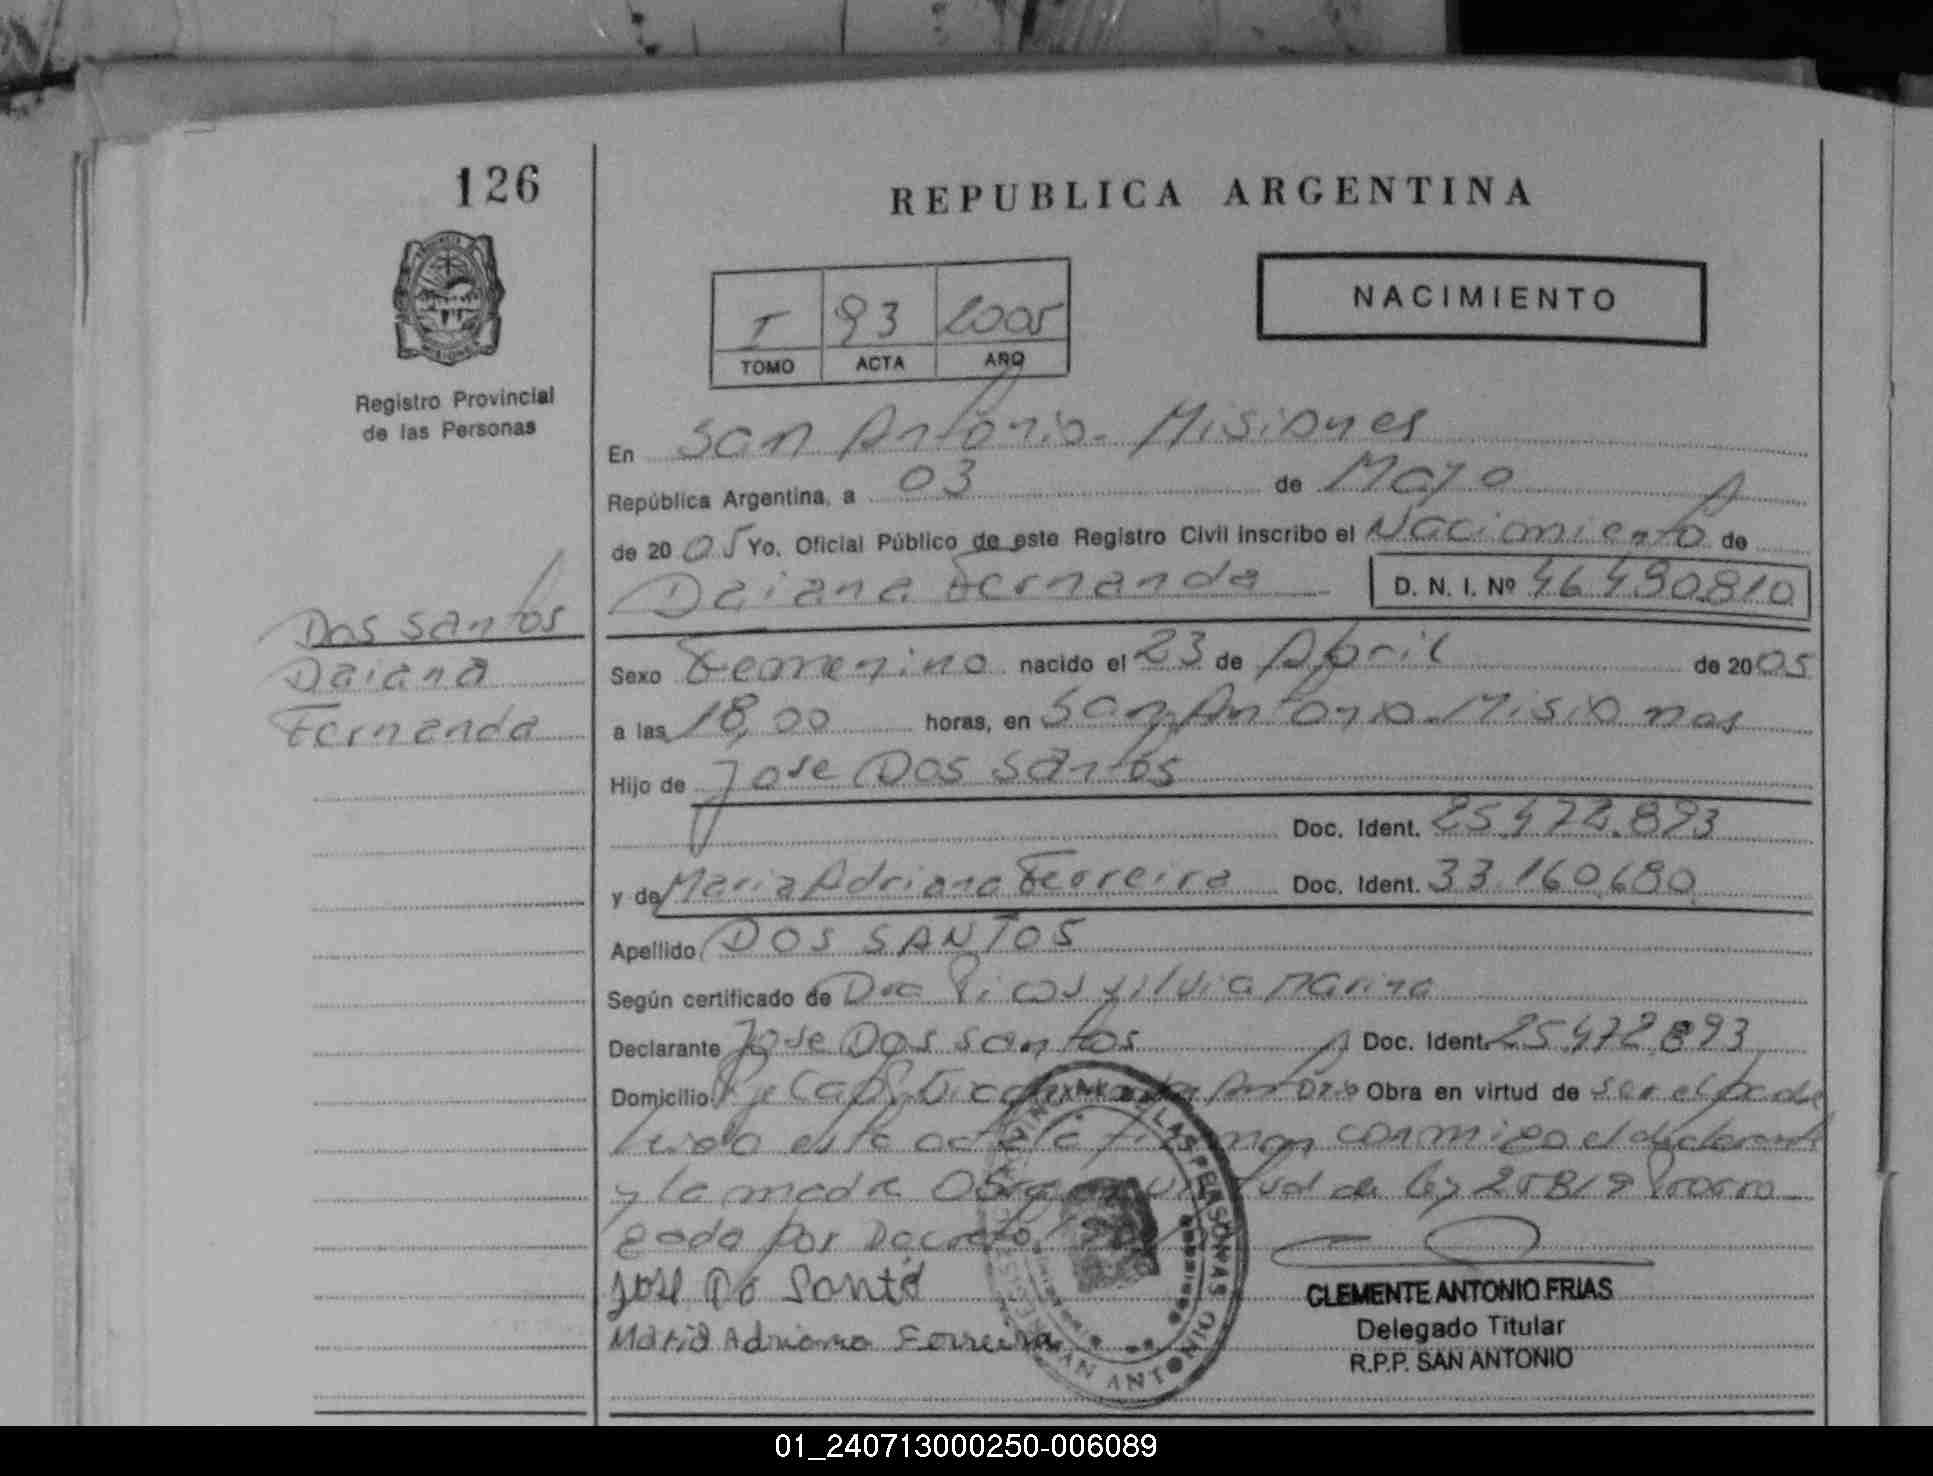 126
REPUBLICA ARGENTINA
NACIMIENTO
I 93 2005
TOMO ACTA AÑO
Registro Provincial
de las Personas
En San Antonio - Misiones
República Argentina, a 03 de Mayo
de 2005 Yo, Oficial Público de este Registro Civil inscribo el Nacimiento de
Daiana Fernanda D. N. I. Nº 46.490.810
Dos Santos
Daiana
Fernanda
Sexo Femenino nacido el 23 de Abril de 2005
a las 18,00 horas, en San Antonio - Misiones
Hijo de Jose Dos Santos
Doc. Ident. 25.472.893
y de Maria Adriana Ferreira Doc. Ident. 33.160.680
Apellido DOS SANTOS
Según certificado de Dra Silvia Marina
Declarante Jose Dos Santos Doc. Ident. 25.472.893
Domicilio Obra en virtud de ser el padre
esta acta la firman conmigo el declarante
y la madre Obra en virtud de ley 25819 Prorro
gada por Decreto
Jose Do Santo
Maria Adriana Ferreira
CLEMENTE ANTONIO FRIAS
Delegado Titular
R.P.P. SAN ANTONIO
01_240713000250-006089